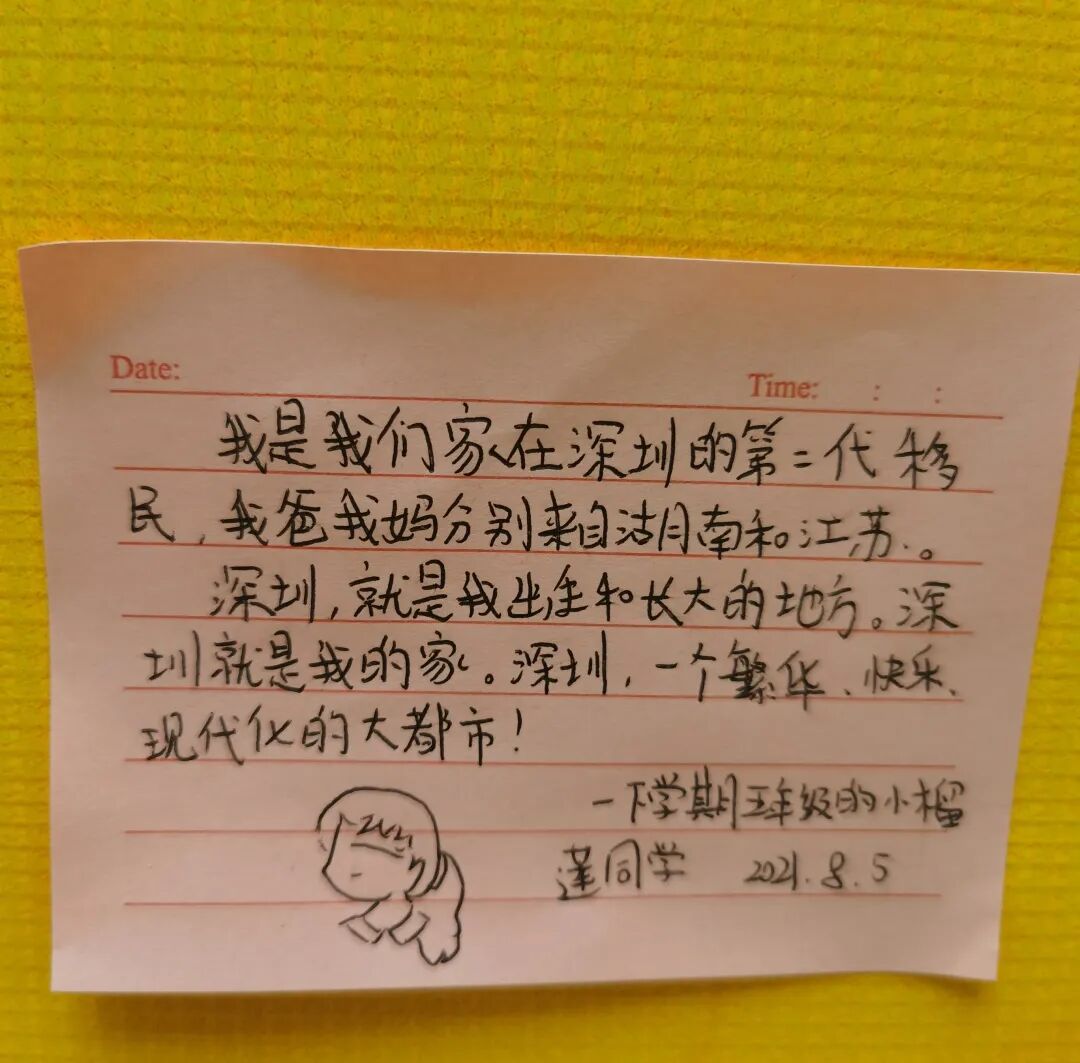 Date:
Time: : :
我是我们家在深圳的第二代移
民,我爸我妈分别来自湖南和江苏。
深圳,就是我出生和长大的地方。深
圳就是我的家。深圳,一个繁华、快乐、
现代化的大都市!
一下学期五年级的小榴
莲同学 2021.8.5